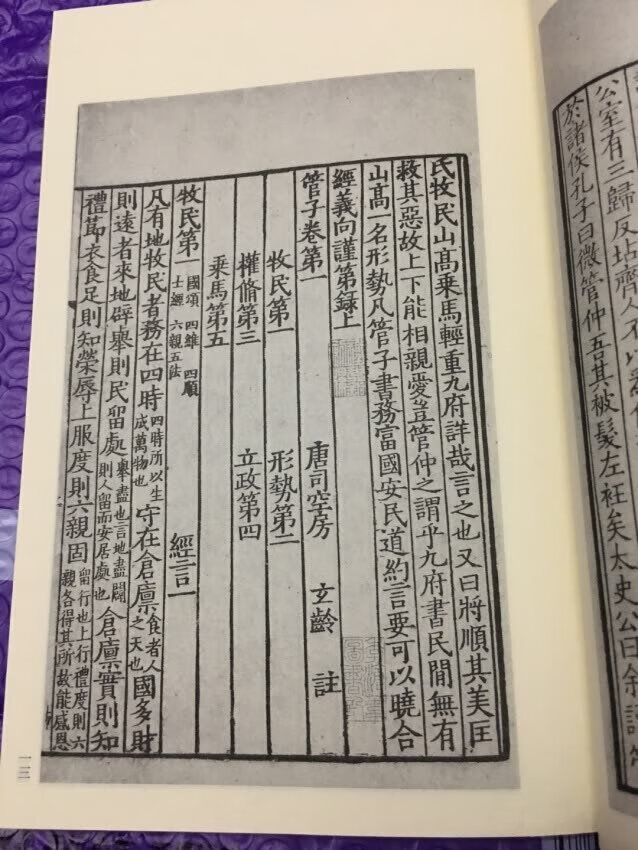 公室有三歸反坫齊人不以
於諸侯孔子曰微管仲吾其被髮左衽矣太史公曰余讀
氏牧民山髙乗馬輕重九府詳哉言之也又曰將順其美匡
救其惡故上下能相親愛豈管仲之謂乎九府書民間無有
山髙一名形勢凡管子書務富國安民道約言要可以曉合
經義向謹第録上
管子卷第一 唐司空房 玄齡 註
牧民第一 形勢第二
權脩第三 立政第四
乗馬第五
牧民第一 國頌 四維 四順 士經 六親五法 經言一
凡有地牧民者務在四時 四時所以生成萬物也 守在倉廩 食者人之天也 國多財
則逺者來地辟舉則民留處 舉盡也言地盡闢則人留而安居處也 倉廩實則知
禮節衣食足則知榮辱上服度則六親固 服行也上行禮度則六親各得其所故能感恩
一三